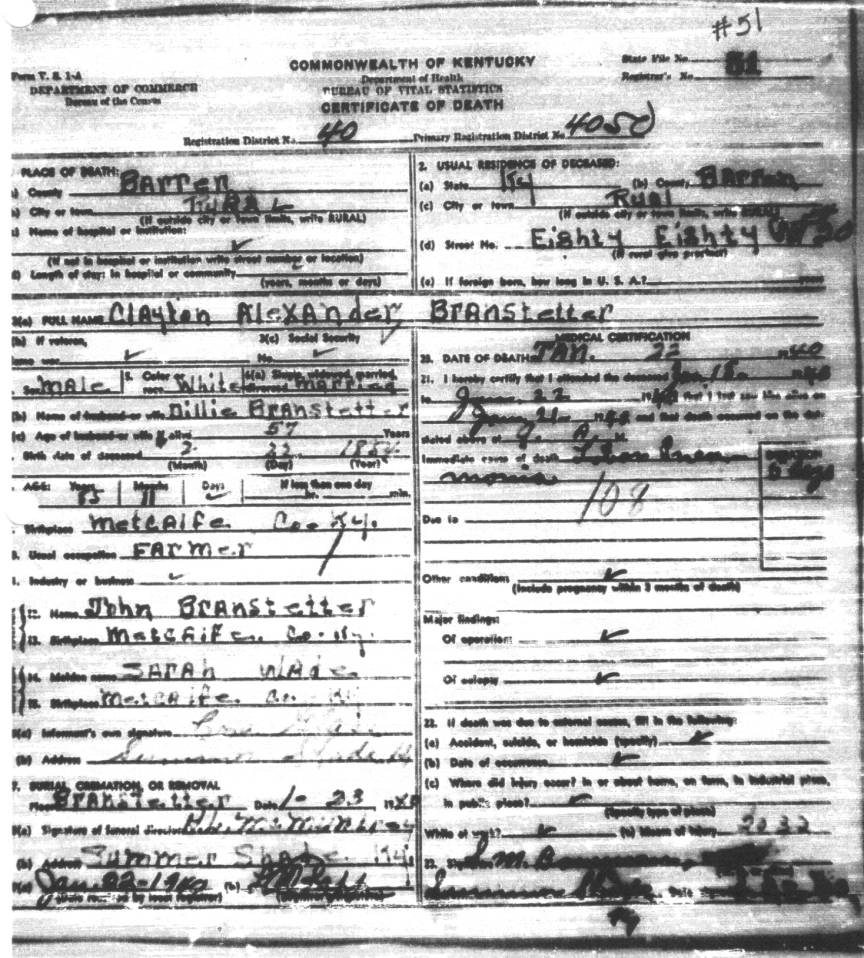 #51
COMMONWEALTH OF KENTUCKY
Department of Health
BUREAU OF VITAL STATISTICS
CERTIFICATE OF DEATH
Form V. S. 1-A
DEPARTMENT OF COMMERCE
Bureau of the Census
State File No.
Registrar's No. 51
Registration District No. 40 Primary Registration District No. 4050
PLACE OF DEATH:
) County Barren
) City or town Rural
(If outside city or town limits, write RURAL)
) Name of hospital or institution:
(If not in hospital or institution write street number or location)
) Length of stay: In hospital or community
(years, months or days)
2. USUAL RESIDENCE OF DECEASED:
(a) State Ky (b) County Barren
(c) City or town Rural
(If outside city or town limits, write RURAL)
(d) Street No. Eighty Eighty
(If rural give precinct)
(e) If foreign born, how long in U. S. A.? years
3(a) FULL NAME Clayton Alexander Branstetter
(b) If veteran, 3(c) Social Security
name war No.
Sex Male 5. Color or race White 6(a) Single, widowed, married, divorced Married
(b) Name of husband or wife Dillie Branstetter
(c) Age of husband or wife if alive 57 Years
Birth date of deceased 2 22 1854
(Month) (Day) (Year)
AGE: Years 85 Months 11 Days If less than one day
hr. min.
Birthplace Metcalfe Co. Ky.
Usual occupation Farmer
Industry or business
12. Name John Branstetter
13. Birthplace Metcalfe Co. Ky.
14. Maiden name Sarah Wade
15. Birthplace Metcalfe Co. Ky
(a) Informent's own signature
(b) Address Summer Shade
7. BURIAL, CREMATION, OR REMOVAL
Place Branstetter Date 1-23 1940
(a) Signature of funeral director McMurtrey
(b) Address Summer Shade Ky.
(a) Jan. 22-1940 (b)
(Date received by local registrar)
MEDICAL CERTIFICATION
20. DATE OF DEATH Jan. 22 1940
21. I hereby certify that I attended the deceased Jan. 18. 1940
to Jan. 22 1940 that I last saw him alive on
Jan. 21 1940 and that death occurred on the date
stated above at 9. A. M.
Immediate cause of death Lobar Pneu
monia
DURATION
5 days
108
Due to
Other conditions
(Include pregnancy within 3 months of death)
Major findings:
Of operation:
Of autopsy
22. If death was due to external causes, fill in the following:
(a) Accident, suicide, or homicide (specify)
(b) Date of occurrence
(c) Where did injury occur? In or about home, on farm, in industrial place,
in public place?
(Specify type of place)
While at work? (e) Means of injury 2032
23. Signature
Summer Shade Date
Ky